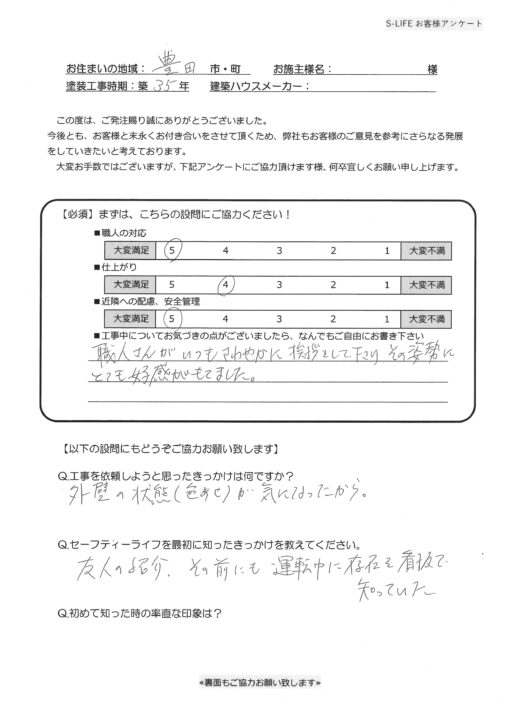 S-LIFE お客様アンケート
お住まいの地域： 豊田 市・町 お施主様名： 様
塗装工事時期：築 35 年 建築ハウスメーカー：
この度は、ご発注賜り誠にありがとうございました。
今後とも、お客様と末永くお付き合いをさせて頂くため、弊社もお客様のご意見を参考にさらなる発展
をしていきたいと考えております。
大変お手数ではございますが、下記アンケートにご協力頂けます様、何卒宜しくお願い申し上げます。
【必須】まずは、こちらの設問にご協力ください！
■職人の対応
大変満足 5 4 3 2 1 大変不満
■仕上がり
大変満足 5 4 3 2 1 大変不満
■近隣への配慮、安全管理
大変満足 5 4 3 2 1 大変不満
■工事中についてお気づきの点がございましたら、なんでもご自由にお書き下さい
職人さんがいつもさわやかに挨拶をして下さり その姿勢に
とても好感がもてました。
【以下の設問にもどうぞご協力お願い致します】
Q.工事を依頼しようと思ったきっかけは何ですか？
外壁の状態（色あせ）が気になったから。
Q.セーフティーライフを最初に知ったきっかけを教えてください。
友人の紹介、その前にも運転中に存在を看板で
知っていた
Q.初めて知った時の率直な印象は？
≪裏面もご協力お願い致します≫